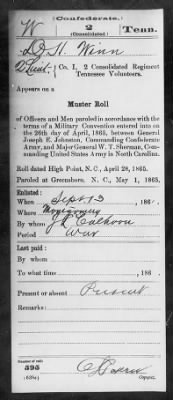 (Confederate.)
W 2 Tenn.
(Consolidated.)
D. H. Winn
2 Lieut, Co. I, 2 Consolidated Regiment
Tennessee Volunteers.
Appears on a
Muster Roll
of Officers and Men paroled in accordance with the
terms of a Military Convention entered into on
the 26th day of April, 1865, between General
Joseph E. Johnston, Commanding Confederate
Army, and Major General W. T. Sherman, Com-
manding United States Army in North Carolina.
Roll dated High Point, N. C., April 28, 1865.
Paroled at Greensboro, N. C., May 1, 1865.
Enlisted:
When Sept 13, 186 .
Where Montgomery
By whom J. L. Calhoun
Period War
Last paid:
By whom
To what time , 186 .
Present or absent Present
Remarks:
Number of roll:
595
(639a)
Copyist.